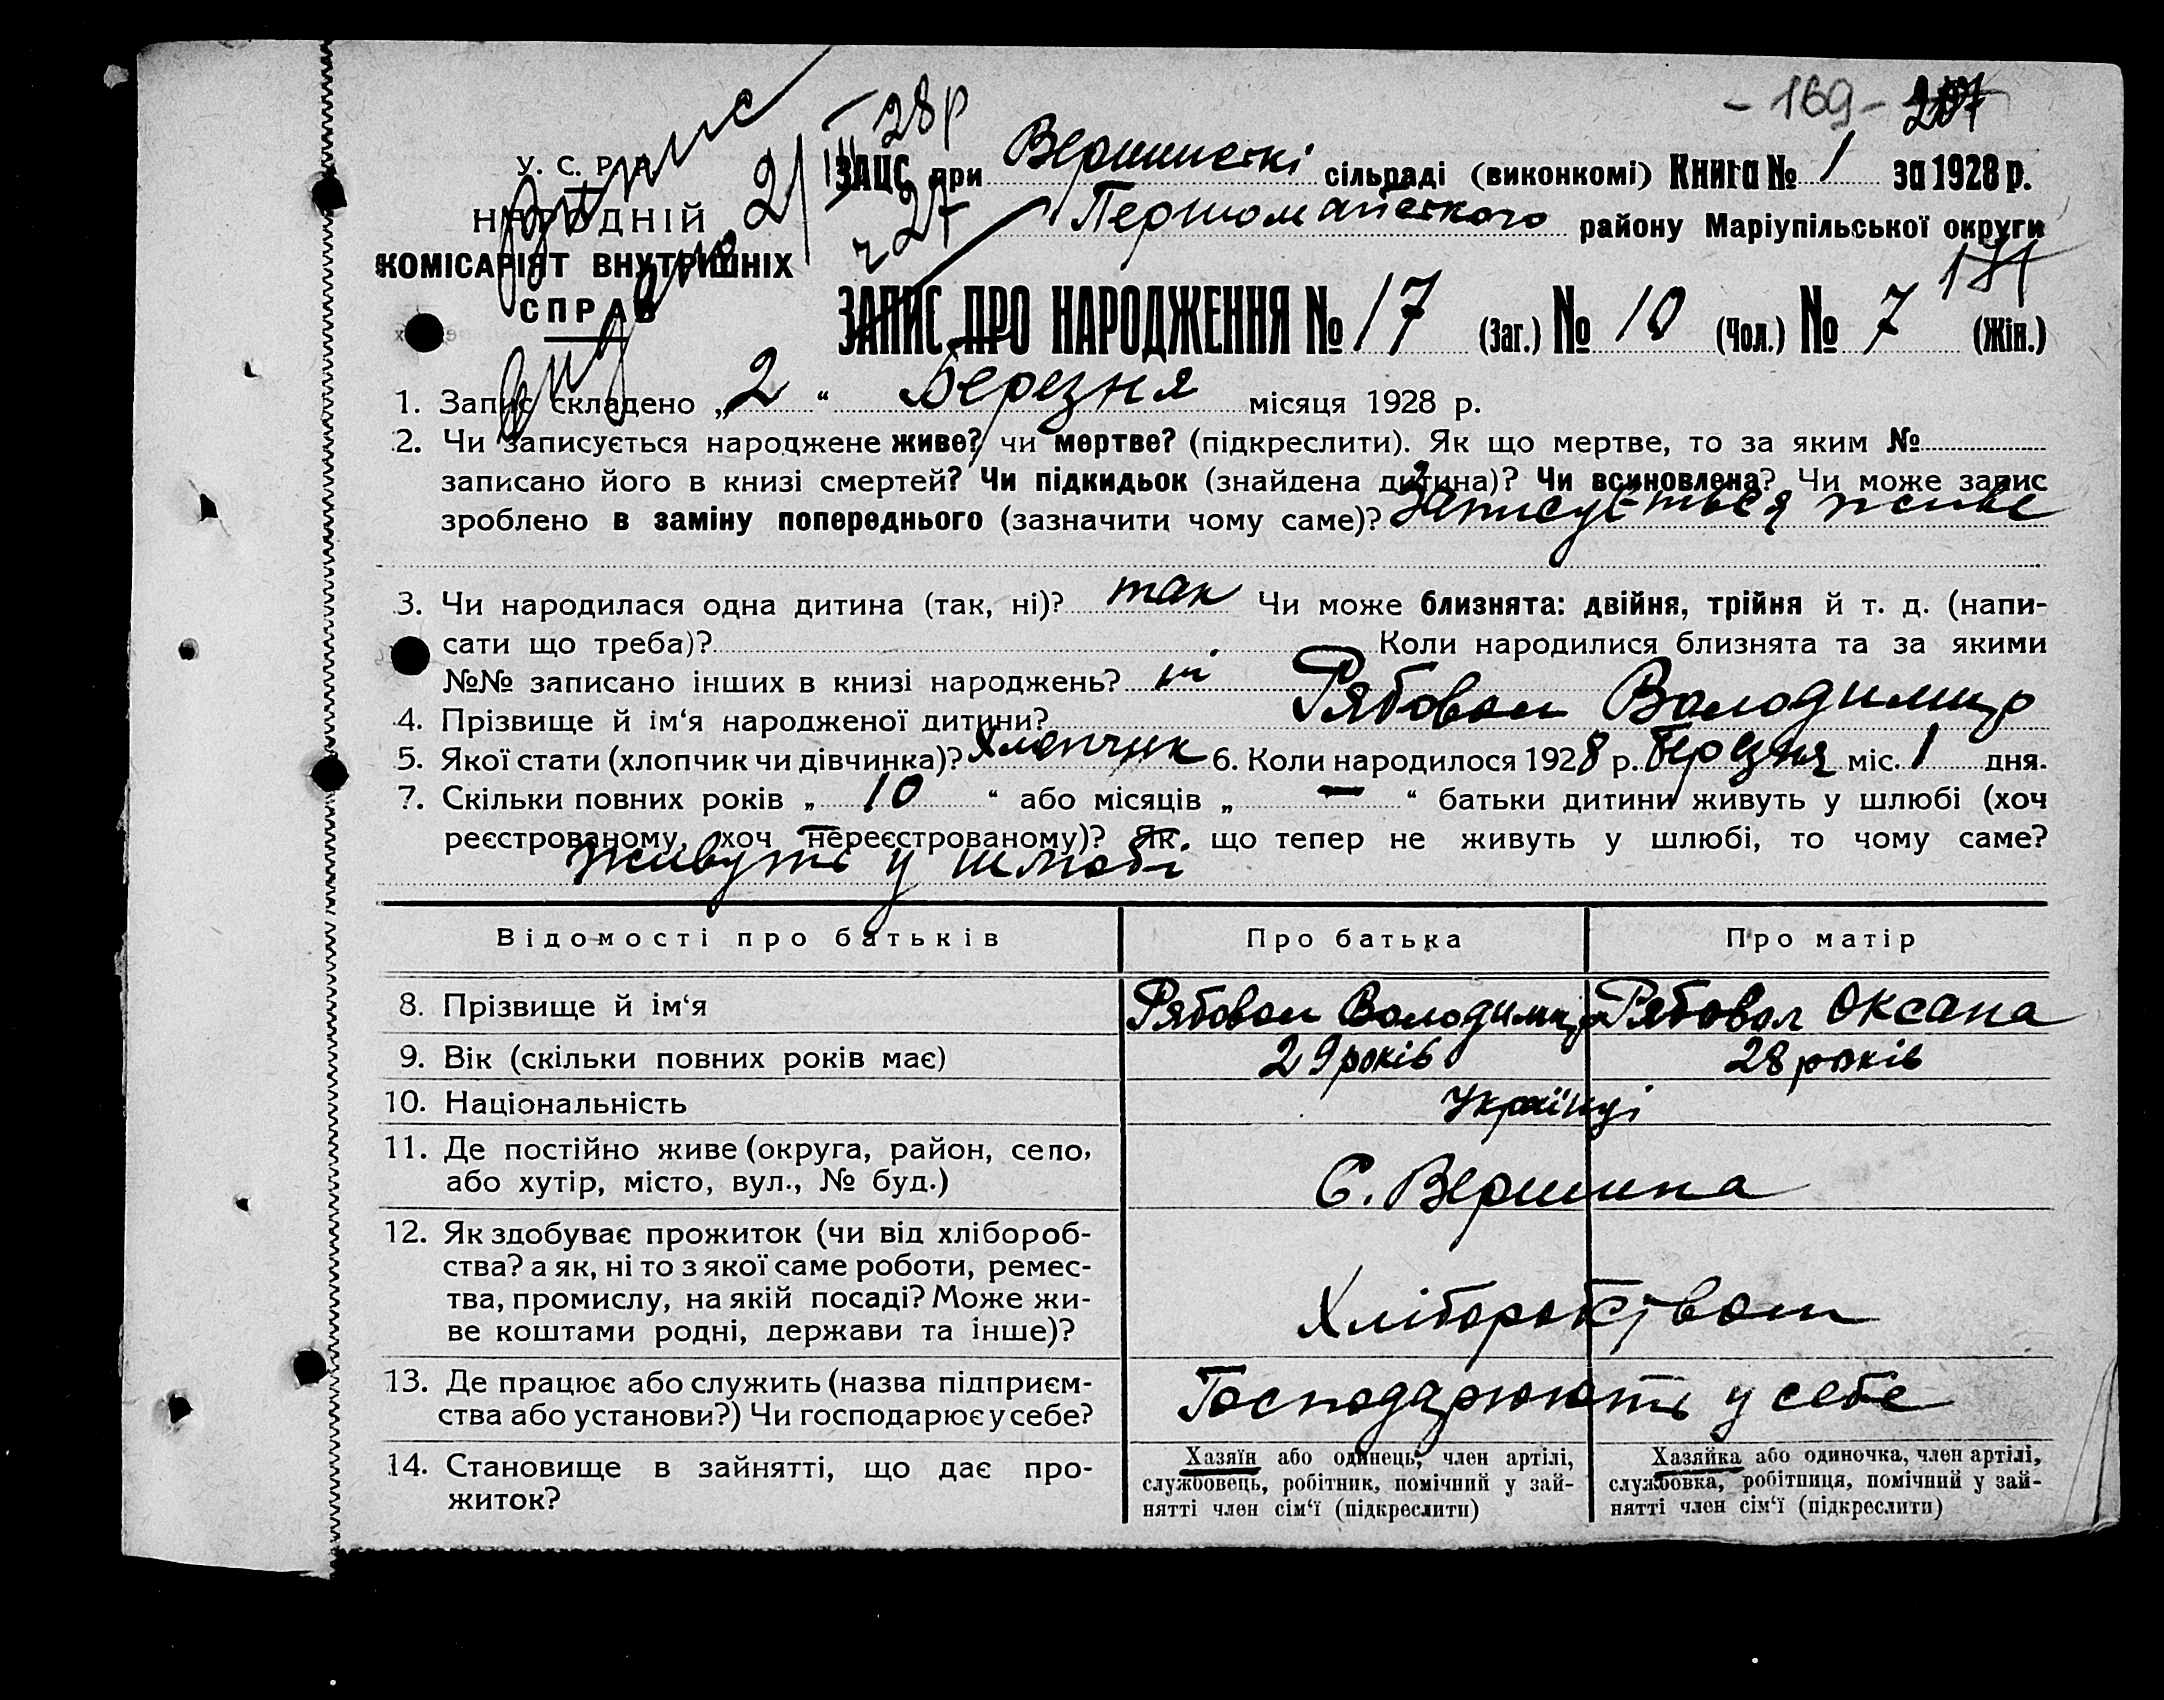 - 169 - 207
28р
У. С. Р. Р. ЗАЦС при Вершинскі сільраді (виконкомі) Книга № 1 за 1928 р.
НАРОДНІЙ Першомайского району Маріупільської округи
КОМІСАРІЯТ ВНУТРІШНІХ
СПРАВ
ЗАПИС ПРО НАРОДЖЕННЯ № 17 (Заг.) № 10 (Чол.) № 7 (Жін.)
1. Запис складено „2“ Березня місяця 1928 р.
2. Чи записується народжене живе? чи мертве? (підкреслити). Як що мертве, то за яким №
записано його в книзі смертей? Чи підкидьок (знайдена дитина)? Чи всиновлена? Чи може запис
зроблено в заміну попереднього (зазначити чому саме)? Записується живе
3. Чи народилася одна дитина (так, ні)? так Чи може близнята: двійня, трійня й т. д. (напи-
сати що треба)? Коли народилися близнята та за якими
№№ записано інших в книзі народжень? ні
4. Прізвище й ім‘я народженої дитини? Рябовол Володимир
5. Якої стати (хлопчик чи дівчинка)? Хлопчик 6. Коли народилося 1928 р. Березня міс. 1 дня.
7. Скільки повних років „10“ або місяців „—“ батьки дитини живуть у шлюбі (хоч
реєстрованому, хоч нереєстрованому)? Як що тепер не живуть у шлюбі, то чому саме?
живуть у шлюбі
Відомості про батьків Про батька Про матір
8. Прізвище й ім‘я Рябовол Володимир Рябовол Оксана
9. Вік (скільки повних років має) 29 років 28 років
10. Національність Українці
11. Де постійно живе (округа, район, село,
або хутір, місто, вул., № буд.) С. Вершина
12. Як здобуває прожиток (чи від хлібороб-
ства? а як, ні то з якої саме роботи, ремес-
тва, промислу, на якій посаді? Може жи-
ве коштами родні, держави та інше)? Хліборобством
13. Де працює або служить (назва підприєм-
ства або установи?) Чи господарює у себе? Господарюють у себе
14. Становище в зайнятті, що дає про-
житок?
Хазяїн або одинець, член артілі,
службовець, робітник, помічний у зай-
нятті член сім‘ї (підкреслити)
Хазяйка або одиночка, член артілі,
службовка, робітниця, помічний у зай-
нятті член сім‘ї (підкреслити)